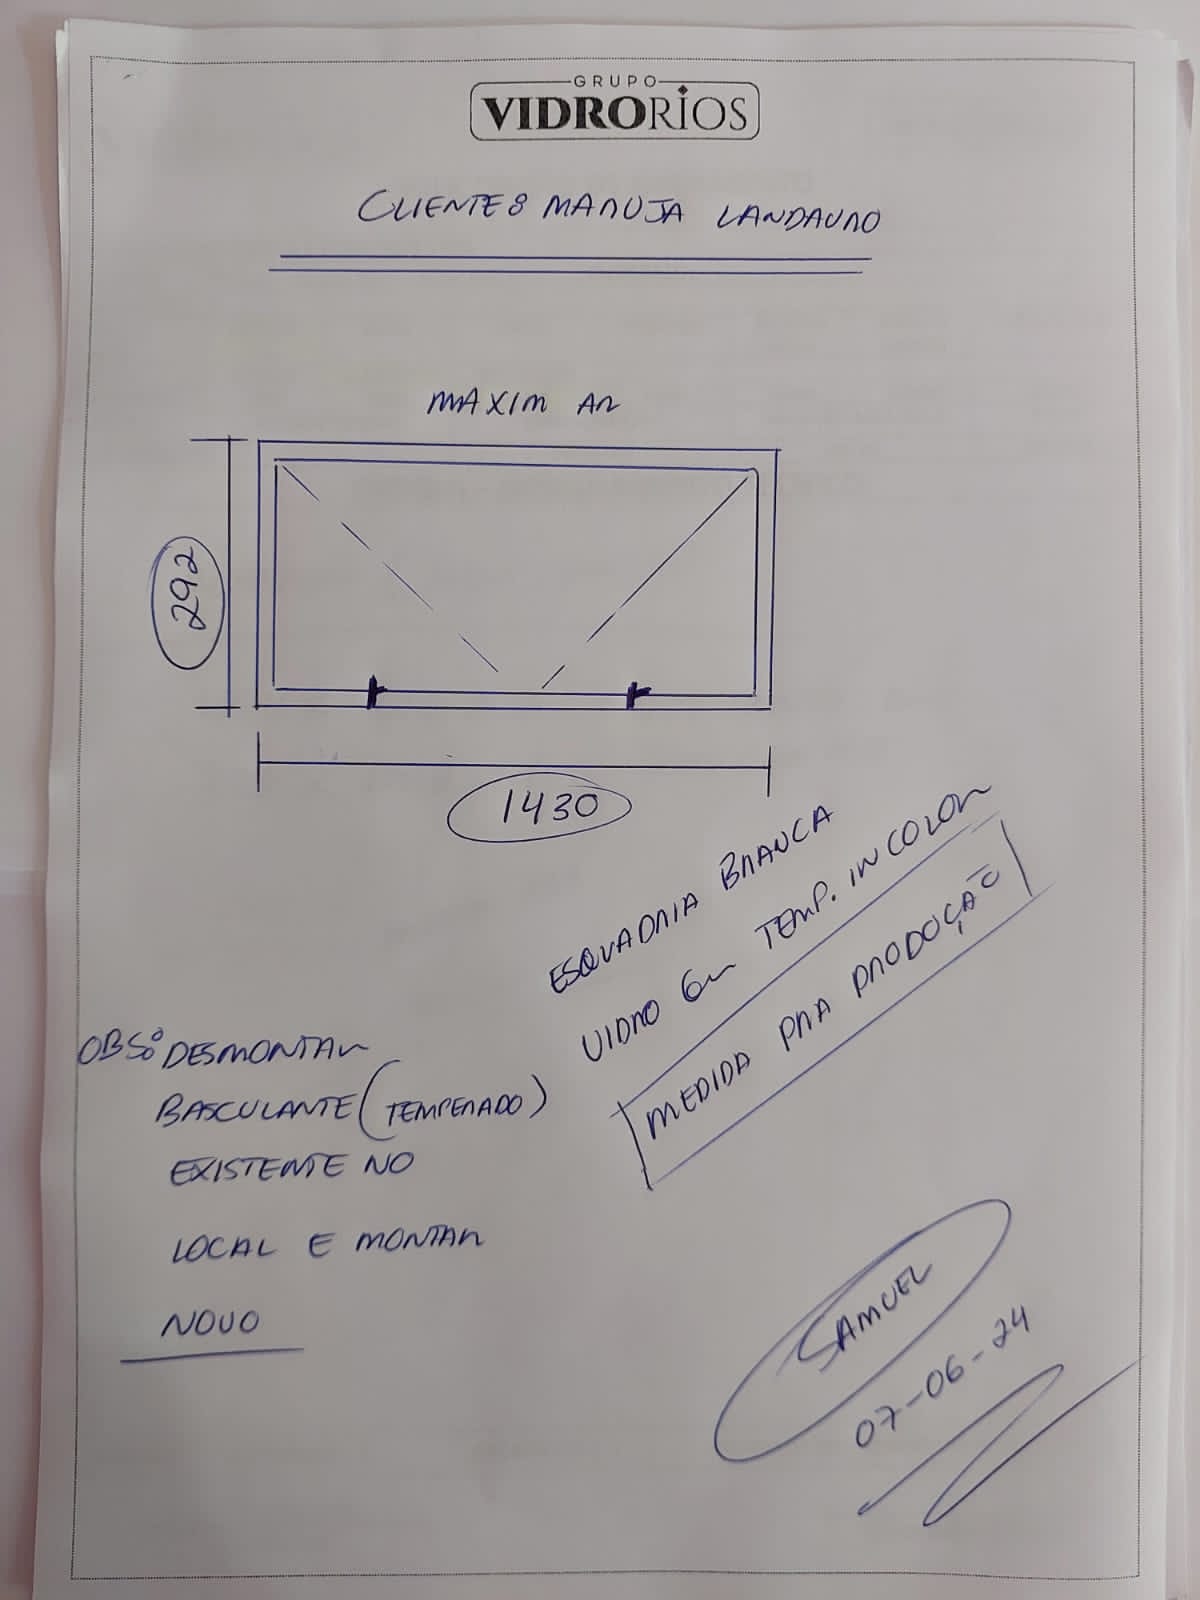 GRUPO
VIDRORIOS
CLIENTE: MARUJA LANDAURO
MAXIM AR
292
1430
ESQUADRIA BRANCA
VIDRO 6m TEMP. INCOLOR
MEDIDA PRA PRODUÇÃO
OBS: DESMONTAR
BASCULANTE (TEMPERADO)
EXISTENTE NO
LOCAL E MONTAR
NOVO
SAMUEL
07-06-24